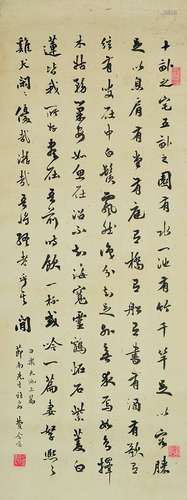 十畝之宅五畝之園有水一池有竹千竿足以容膝
足以息肩有堂有庭有橋有船有書有酒有歌有
弦有叟在中白鬚飄然識分知足外無求焉如鳥擇
木姑務巢安如龜居坎不知海寬靈鶴怪石紫菱白
蓮皆我所好盡在吾前時飲一杯或吟一篇妻孥熙々
雞犬閑々優哉游哉吾將終老乎其間
白樂天池上篇
先生